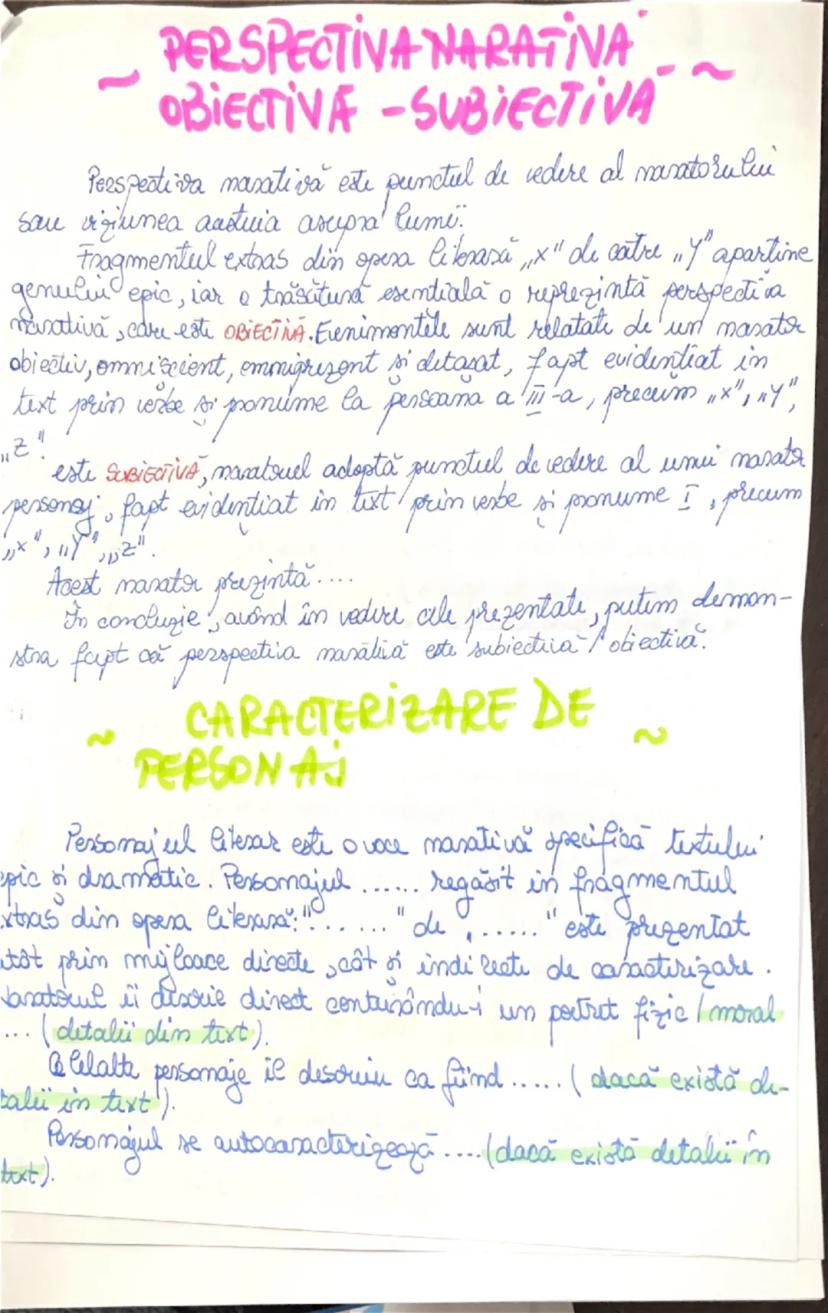 ~ PERSPECTIVA NARATIVĂ
OBIECTIVĂ - SUBIECTIVĂ ~
Perspectiva narativă este punctul de vedere al naratorului
sau viziunea acestuia asupra lumii.
Fragmentul extras din opera literară „x" de către „y" aparține
genului epic, iar o trăsătură esențială o reprezintă perspectiva
narativă, care este OBIECTIVĂ. Evenimentele sunt relatate de un narator
obiectiv, omniscient, omniprezent și detașat, fapt evidențiat in
text prin verbe și pronume la persoana a III-a, precum „x", „y",
„z".
este SUBIECTIVĂ, naratorul adoptă punctul de vedere al unui narator
personaj, fapt evidențiat in text prin verbe și pronume I, precum
„x", „y", „z".
Acest narator prezintă....
În concluzie, având în vedere cele prezentate, putem demon-
stra fapt că perspectiva narativă este subiectivă / obiectivă.
~ CARACTERIZARE DE ~
PERSONAJ
Personajul literar este o voce narativă specifică textului
epic și dramatic. Personajul ...... regăsit in fragmentul
xtras din opera literară: "......." de „......" este prezentat
atât prin mijloace directe, cât și indirecte de caracterizare.
Naratorul îi descrie direct conturându-i un portret fizic / moral
... (detalii din text).
Celelalte personaje il descriu ca fiind ...... (dacă există de-
talii in text).
Personajul se autocaracterizează ....(dacă există detalii în
text).